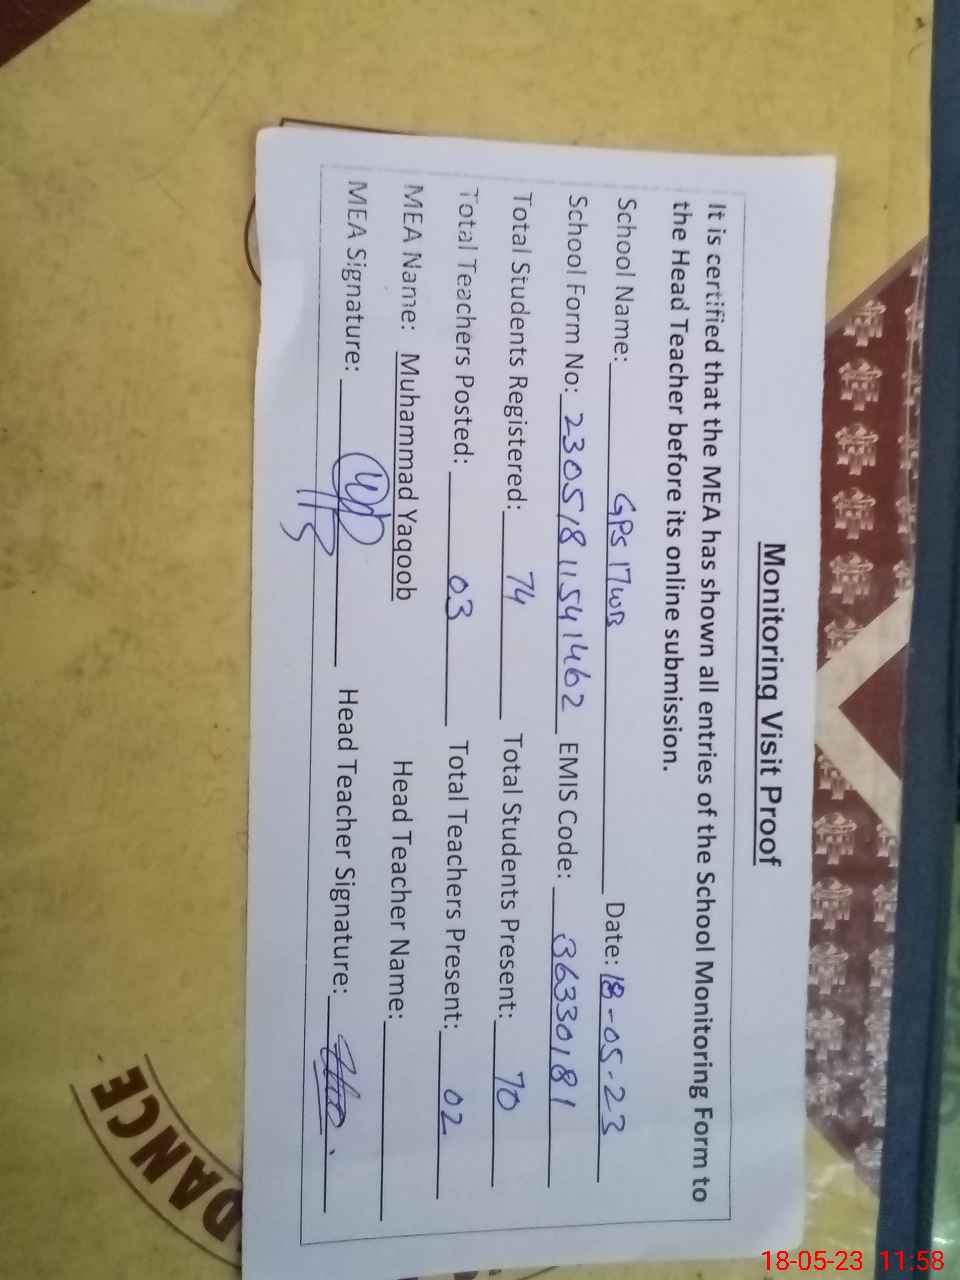 Monitoring Visit Proof
It is certified that the MEA has shown all entries of the School Monitoring Form to
the Head Teacher before its online submission.
School Name: GPS 17WB Date: 18-05-23
School Form No: 23051811541462 EMIS Code: 36330181
Total Students Registered: 74 Total Students Present: 70
Total Teachers Posted: 03 Total Teachers Present: 02
MEA Name: Muhammad Yaqoob Head Teacher Name:
MEA Signature: Head Teacher Signature:
DANCE
18-05-23 11:58